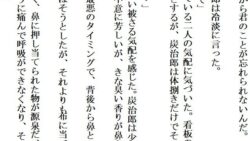 らのことが忘れられないんだ。
郎は冷淡に言った。
」
ている二人の気配に気づいた。看板
とするが、炭治郎は体捌きだけでそ
い被さる気配を感じた。炭治郎は少
不意に しいが、きな臭い香りが鼻
最悪のタイミングで、背後から鼻と
はそうとしたが、それよりも布に当
、鼻に押し当てられた物が源泉だ
に痛んで呼吸ができなくなり、そ